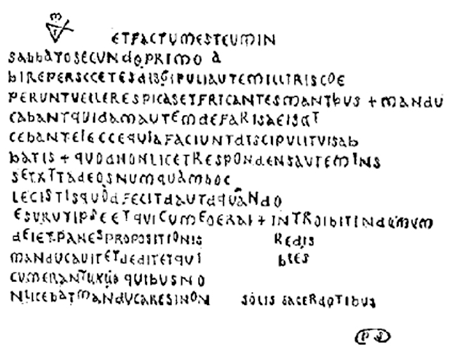 ETFACTUMESTEUMIN
SABBATOSECUNDOPRIMO A
BIREPERSCCETESDISGIPULIAUTEMILLIRISCOE
PERUNTUELLERESPICASETFRICANTESMANTBUS + MANDU
CABANTQUIDAMAUTEMDEFARISAEISAT
CEBANTELECCEQUIAFACIUNTDISCIPULITUISAB
BATIS + QUODNONLICETRESPONDENSAUTEMINS
SETXTTADEOSNUMQUAMBOC
LECISTISQUODFECITDAUTDQUANDO
ESURUTIPSEETQUICUMEOERAT + INTROIBITINDUMUM
DEIETPANESPROPOSITIONIS REDIS
MANDUCAUITETDEDITETQUI BLES
CUMERANTUXUO QUIBUSNO
NLICEBATMANDUCARESINON SOLIS SACERDOTIBUS
PS